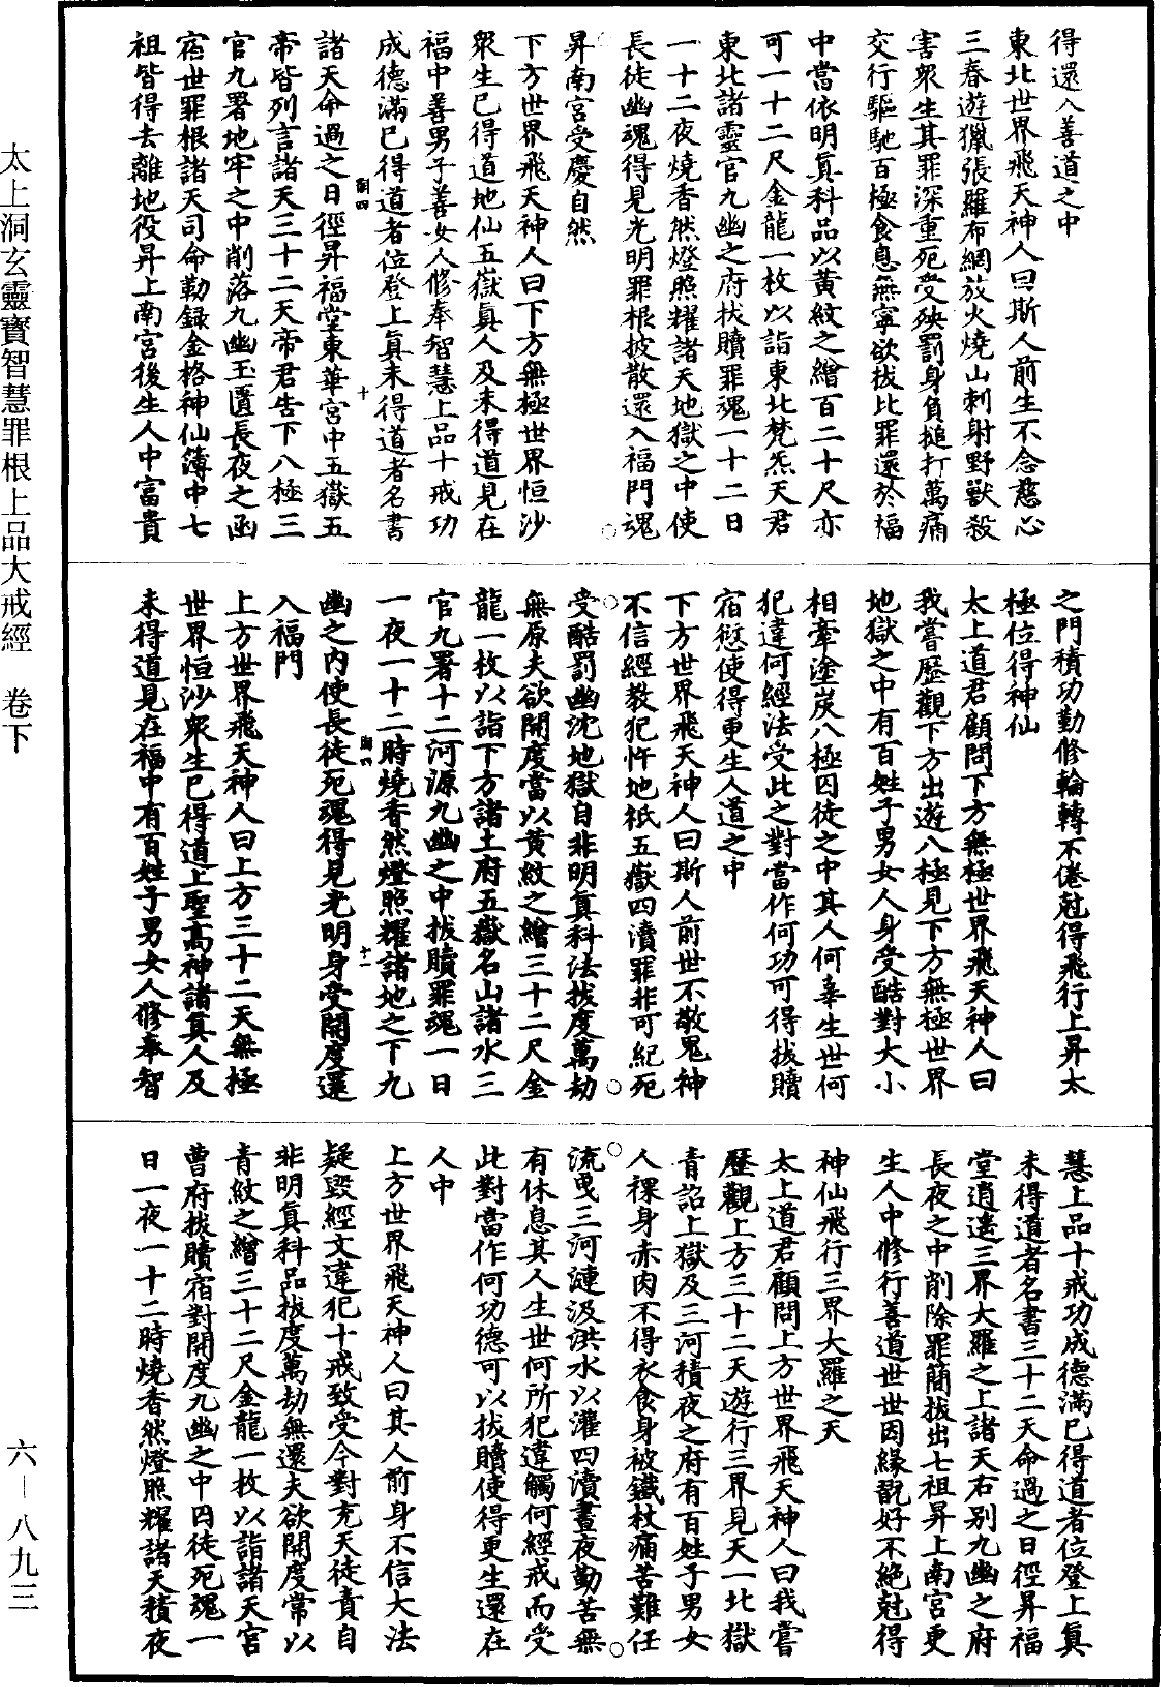 得還入善道之中
東北世界飛天神人曰斯人前生不念慈心
三春遊獵張羅布網放火燒山刺射野獸殺
害衆生其罪深重死受殃罰身負搥打萬痛
交行驅馳百極食息無寧欲拔比罪還於福
中當依明真科品以黃紋之繒百二十尺亦
可一十二尺金龍一枚以詣東北梵炁天君
東北諸靈官九幽之府拔贖罪魂一十二日
一十二夜燒香然燈照耀諸天地獄之中使
長徒幽魂得見光明罪根披散還入福門魂
昇南宮受慶自然
下方世界飛天神人曰下方無極世界恒沙
衆生已得道地仙五嶽真人及未得道見在
福中善男子善女人修奉智慧上品十戒功
成德滿已得道者位登上真未得道者名書
諸天命過之日徑昇福堂東華宮中五嶽五
帝皆列言諸天三十二天帝君告下八極三
官九署地牢之中削落九幽玉匱長夜之函
宿世罪根諸天司命勒録金格神仙簿中七
祖皆得去離地役昇上南宮後生人中富貴
之門積功勤修輪轉不倦尅得飛行上昇太
極位得神仙
太上道君顧問下方無極世界飛天神人曰
我嘗歷觀下方出遊八極見下方無極世界
地獄之中有百姓子男女人身受酷對大小
相牽塗炭八極囚徒之中其人何辜生世何
犯違何經法受此之對當作何功可得拔贖
宿愆使得更生人道之中
下方世界飛天神人曰斯人前世不敬鬼神
不信經教犯忤地祇五嶽四瀆罪非可紀死
受酷罰幽沈地獄自非明真科法拔度萬劫
無原夫欲開度當以黃紋之繒三十二尺金
龍一枚以詣下方諸土府五嶽名山諸水三
官九署十二河源九幽之中拔贖罪魂一日
一夜一十二時燒香然燈照耀諸地之下九
幽之内使長徒死魂得見光明身受開度還
入福門
上方世界飛天神人曰上方三十二天無極
世界恒沙衆生已得道上聖高神諸真人及
未得道見在福中有百姓子男女人修奉智
慧上品十戒功成德滿已得道者位登上真
未得道者名書三十二天命過之日徑昇福
堂逍遙三界大羅之上諸天右別九幽之府
長夜之中削除罪簡拔出七祖昇上南宮更
生人中修行善道世世因緣翫好不絶尅得
神仙飛行三界大羅之天
太上道君顧問上方世界飛天神人曰我嘗
歷觀上方三十二天遊行三界見天一北獄
青詔上獄及三河積夜之府有百姓子男女
人裸身赤肉不得衣食身被鐵杖痛苦難任
流曳三河漣汲洪水以灌四瀆晝夜勤苦無
有休息其人生世何所犯違觸何經戒而受
此對當作何功德可以拔贖使得更生還在
人中
上方世界飛天神人曰其人前身不信大法
疑毀經文違犯十戒致受今對充天徒責自
非明真科品拔度萬劫無還夫欲開度常以
青紋之繒三十二尺金龍一枚以詣諸天官
曹府拔贖宿對開度九幽之中囚徒死魂一
日一夜一十二時燒香然燈照耀諸天積夜
太上洞玄靈寶智慧罪根上品大戒經　卷下
六—八九三